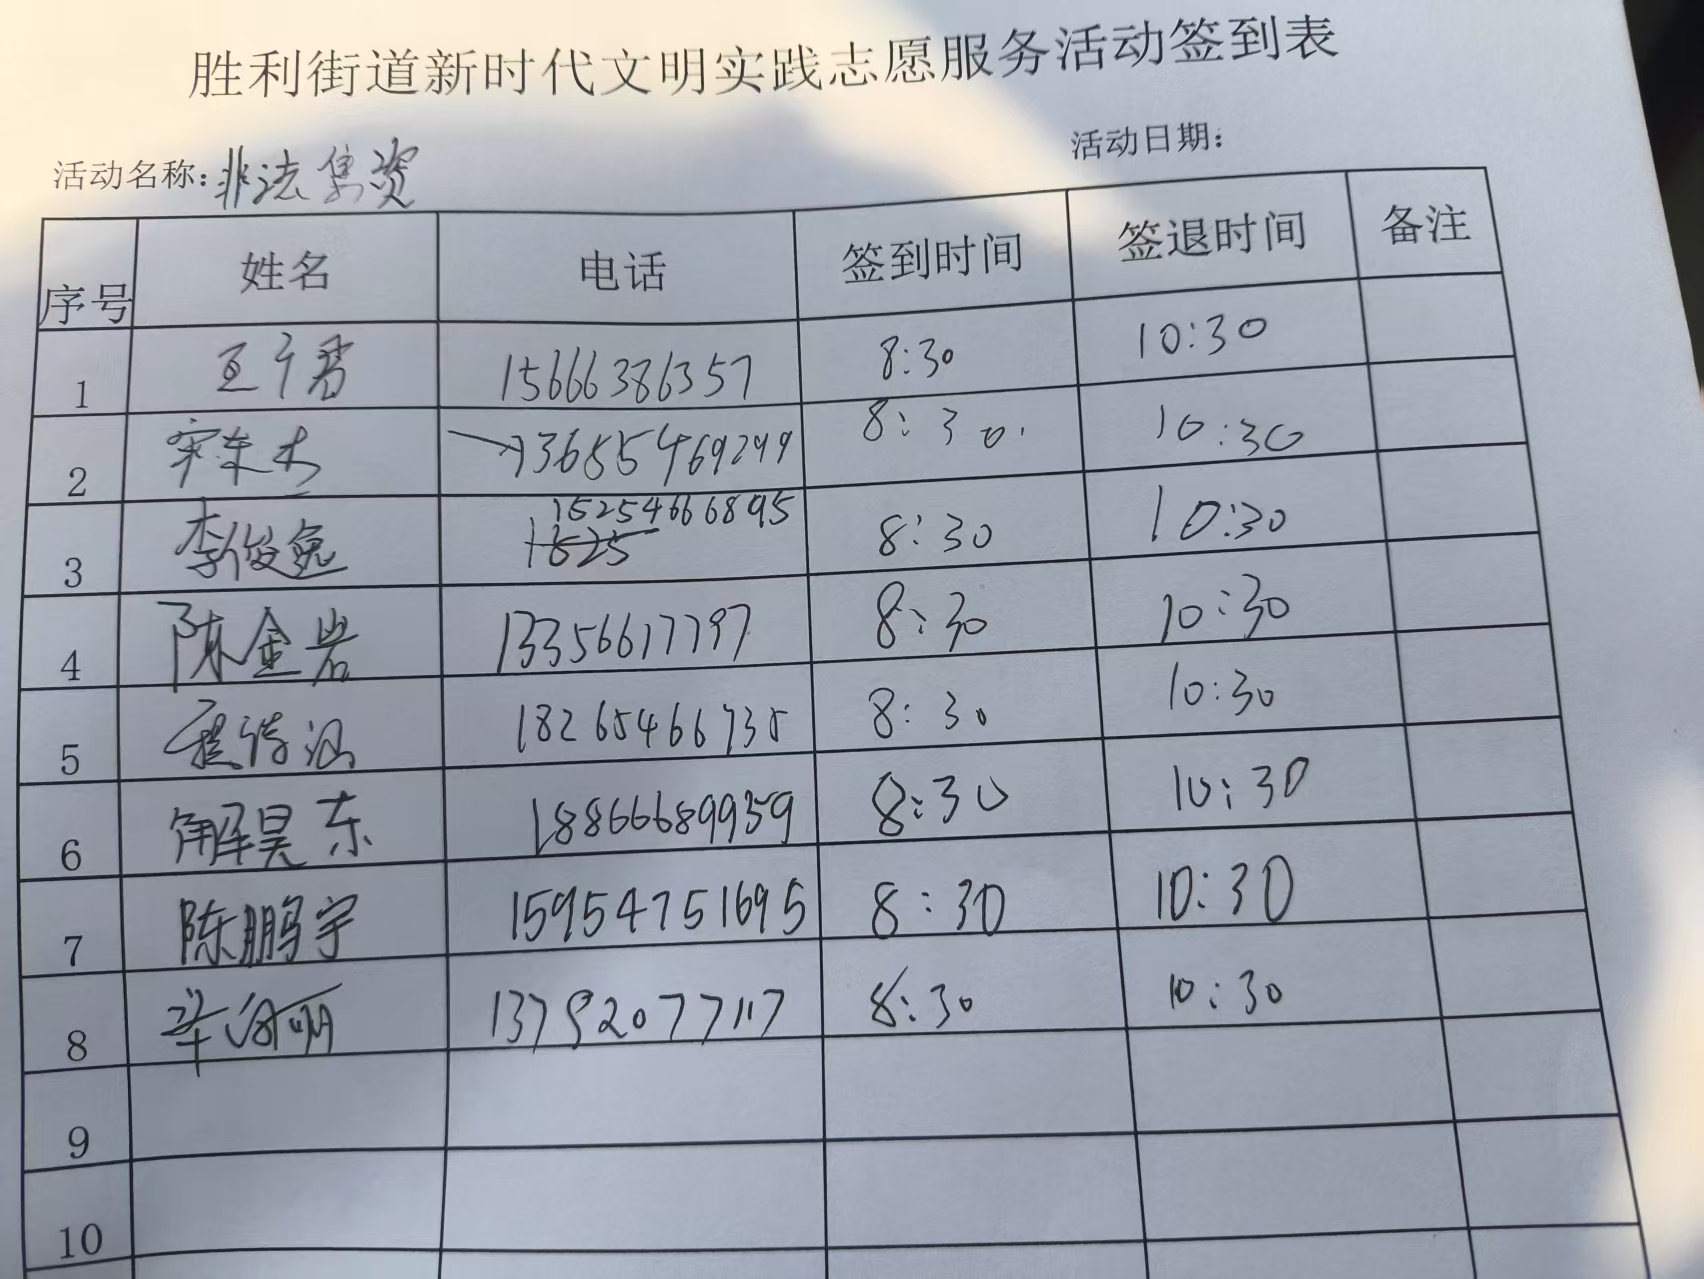 胜利街道新时代文明实践志愿服务活动签到表
活动名称:非法集资 活动日期:
序号 姓名 电话 签到时间 签退时间 备注
1 15666386357 8:30 10:30
2 13685469299 8:30. 10:30
3 李俊逸 15254666895 8:30 10:30
1525
4 陈金岩 13356617797 8:30 10:30
5 18265466735 8:30 10:30
6 解昊东 18866689959 8:30 10:30
7 陈鹏宇 15954751695 8:30 10:30
8 13792077117 8:30 10:30
9
10